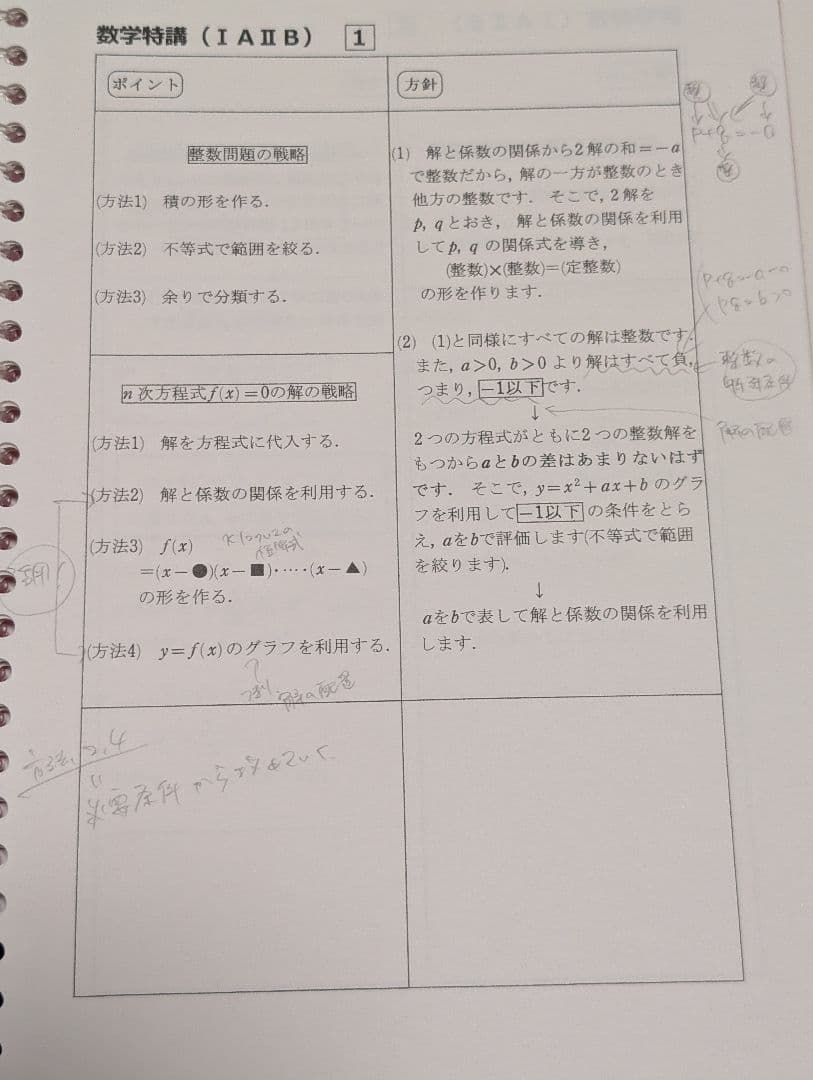 数学特講（ⅠAⅡB） 1
ポイント
整数問題の戦略
(方法1) 積の形を作る.
(方法2) 不等式で範囲を絞る.
(方法3) 余りで分類する.
n次方程式f(x)=0の解の戦略
(方法1) 解を方程式に代入する.
(方法2) 解と係数の関係を利用する.
(方法3) f(x)
=(x-●)(x-■)・‥‥(x-▲)
の形を作る.
(方法4) y=f(x)のグラフを利用する.
解の配置
方法2,4
必要条件から攻めていく
方針
(1) 解と係数の関係から2解の和=-a
で整数だから, 解の一方が整数のとき
他方の整数です. そこで, 2解を
p, qとおき, 解と係数の関係を利用
してp, qの関係式を導き,
(整数)×(整数)=(定整数)
の形を作ります.
(2) (1)と同様にすべての解は整数です.
また, a>0, b>0より解はすべて負,
つまり, -1以下です.
↓
2つの方程式がともに2つの整数解を
もつからaとbの差はあまりないはず
です. そこで, y=x²+ax+bのグラ
フを利用して-1以下の条件をとら
え, aをbで評価します(不等式で範囲
を絞ります).
↓
aをbで表して解と係数の関係を利用
します.
p+q=-a
整
整
pq=b>0
整数の
解の配置